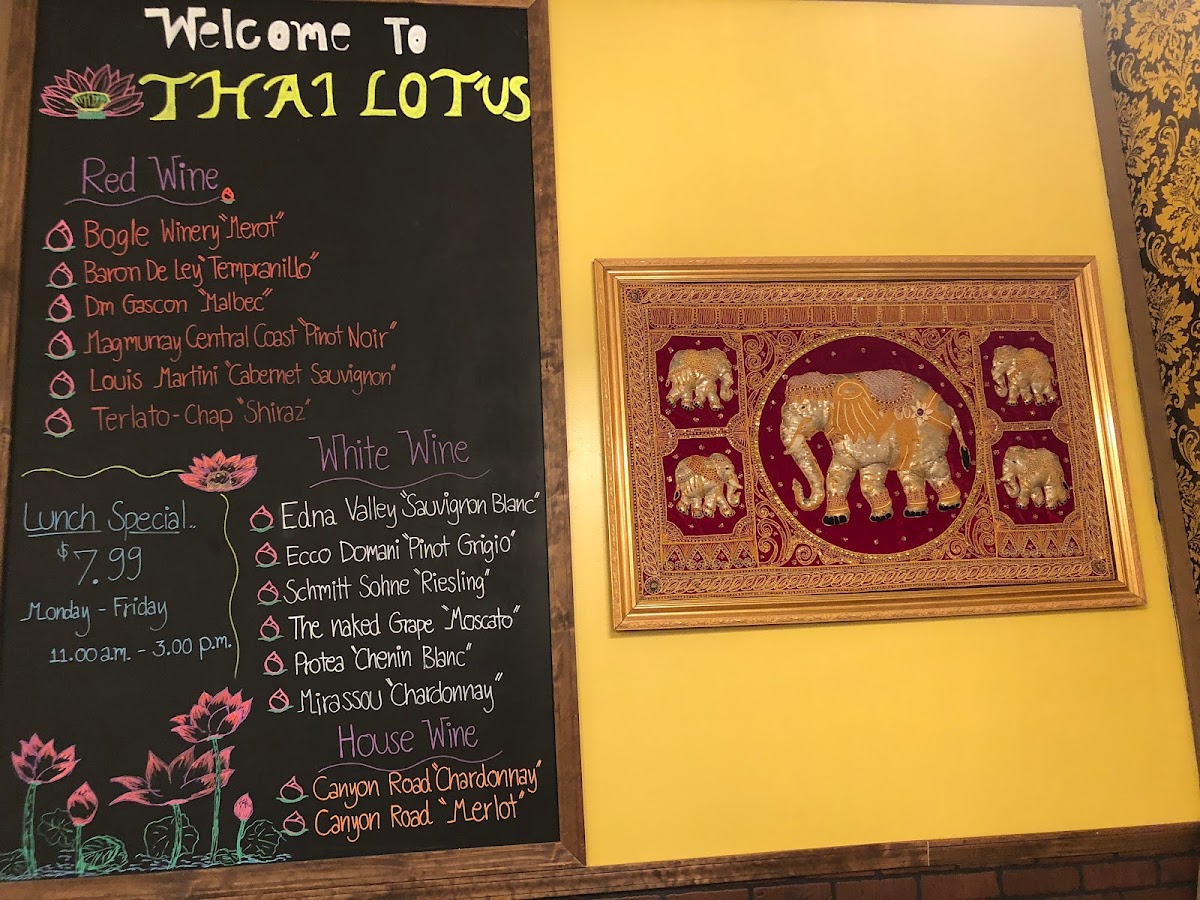 Welcome To
THAI LOTUS
Red Wine
Bogle Winery "Merot"
Baron De Ley "Tempranillo"
Dm Gascon "Malbec"
Magmurray Central Coast "Pinot Noir"
Louis Martini "Cabernet Sauvignon"
Terlato-Chap "Shiraz"
White Wine
Edna Valley "Sauvignon Blanc"
Ecco Domani "Pinot Grigio"
Schmitt Sohne "Riesling"
The naked Grape "Moscato"
Protea "Chenin Blanc"
Mirassou "Chardonnay"
House Wine
Canyon Road "Chardonnay"
Canyon Road "Merlot"
Lunch Special..
$7.99
Monday - Friday
11.00 a.m. - 3.00 p.m.